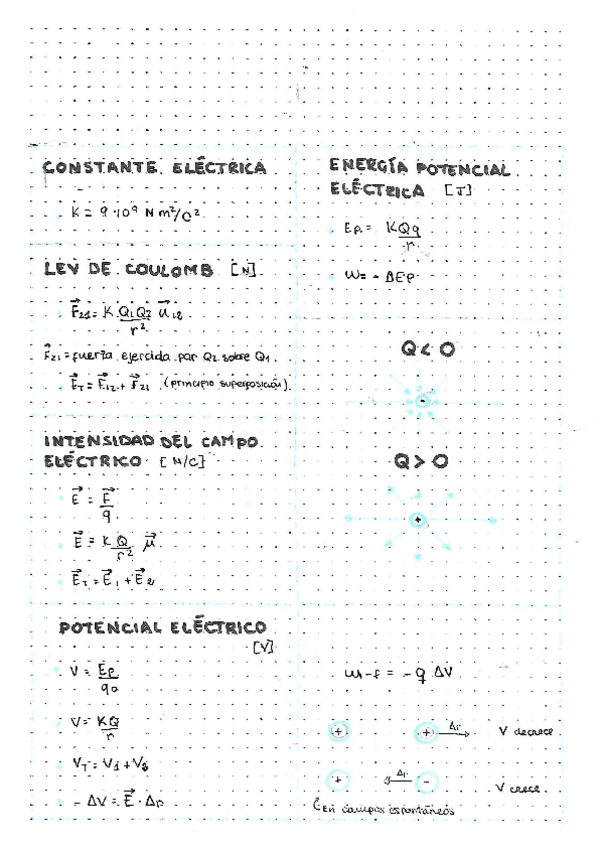 CONSTANTE ELÉCTRICA
K = 9·10⁹ N m²/C²
LEY DE COULOMB [N]
F⃗₂₁ = K Q₁Q₂/r² u⃗₁₂
F⃗₂₁ = fuerza ejercida por Q₂ sobre Q₁.
F⃗ₜ = F⃗₁₂ + F⃗₂₁ (principio superposición)
INTENSIDAD DEL CAMPO
ELÉCTRICO [N/C]
E⃗ = F⃗/q
E⃗ = K Q/r² u⃗
E⃗ₜ = E⃗₁ + E⃗₂
POTENCIAL ELÉCTRICO
[V]
V = Ep/q₀
V = KQ/r
Vₜ = V₁ + V₂
- ΔV = E⃗ · Δr
ENERGÍA POTENCIAL
ELÉCTRICA [J]
Ep = KQq/r
W = - ΔEp
Q < 0
-
Q > 0
+
Wi-f = -q ΔV
+ + Δr V decrece
+ Δr - V crece.
(En campos espontáneos